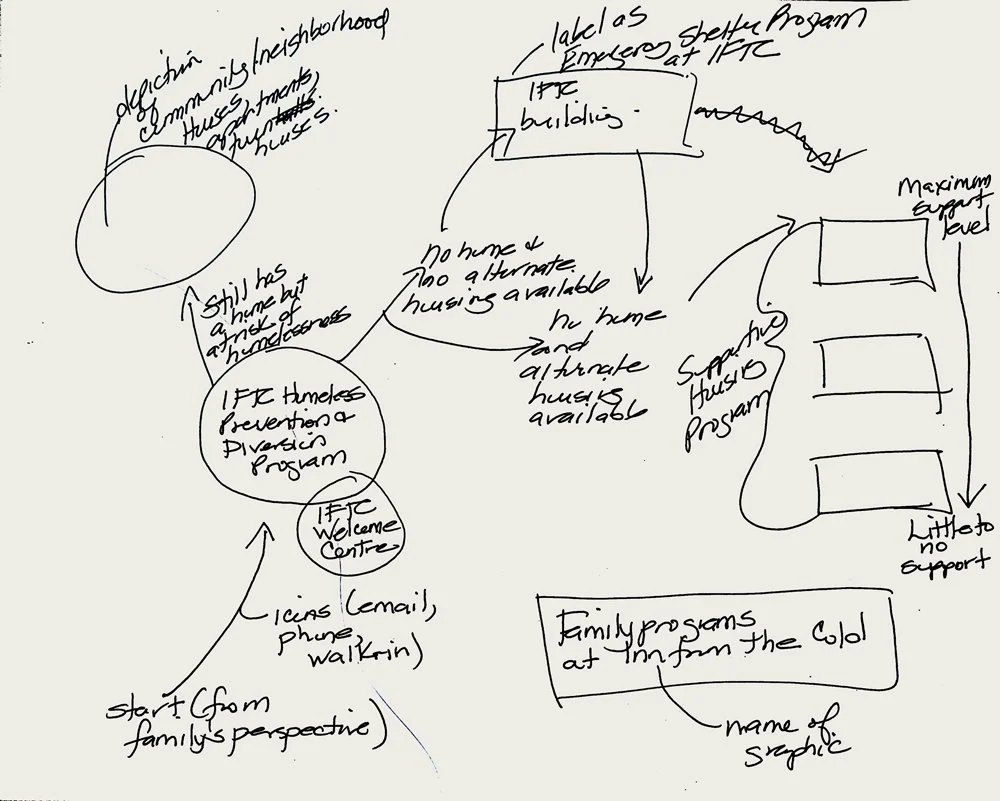 depiction
of
community/neighborhood
Houses,
apartments,
town
houses.
label as
Emergency Shelter Program
at IFTC
IFTC
building.
Maximum
support
level
no home &
no alternate
housing available
Still has
a home but
at risk of
homelessness
no home
and
alternate
housing
available
Supportive
Housing
Program
IFTC Homeless
Prevention &
Diversion
Program
IFTC
Welcome
Centre
Little to
no
support
icons (email,
phone,
walk-in)
start (from
family's perspective)
Family programs
at Inn from the Cold
name of
graphic